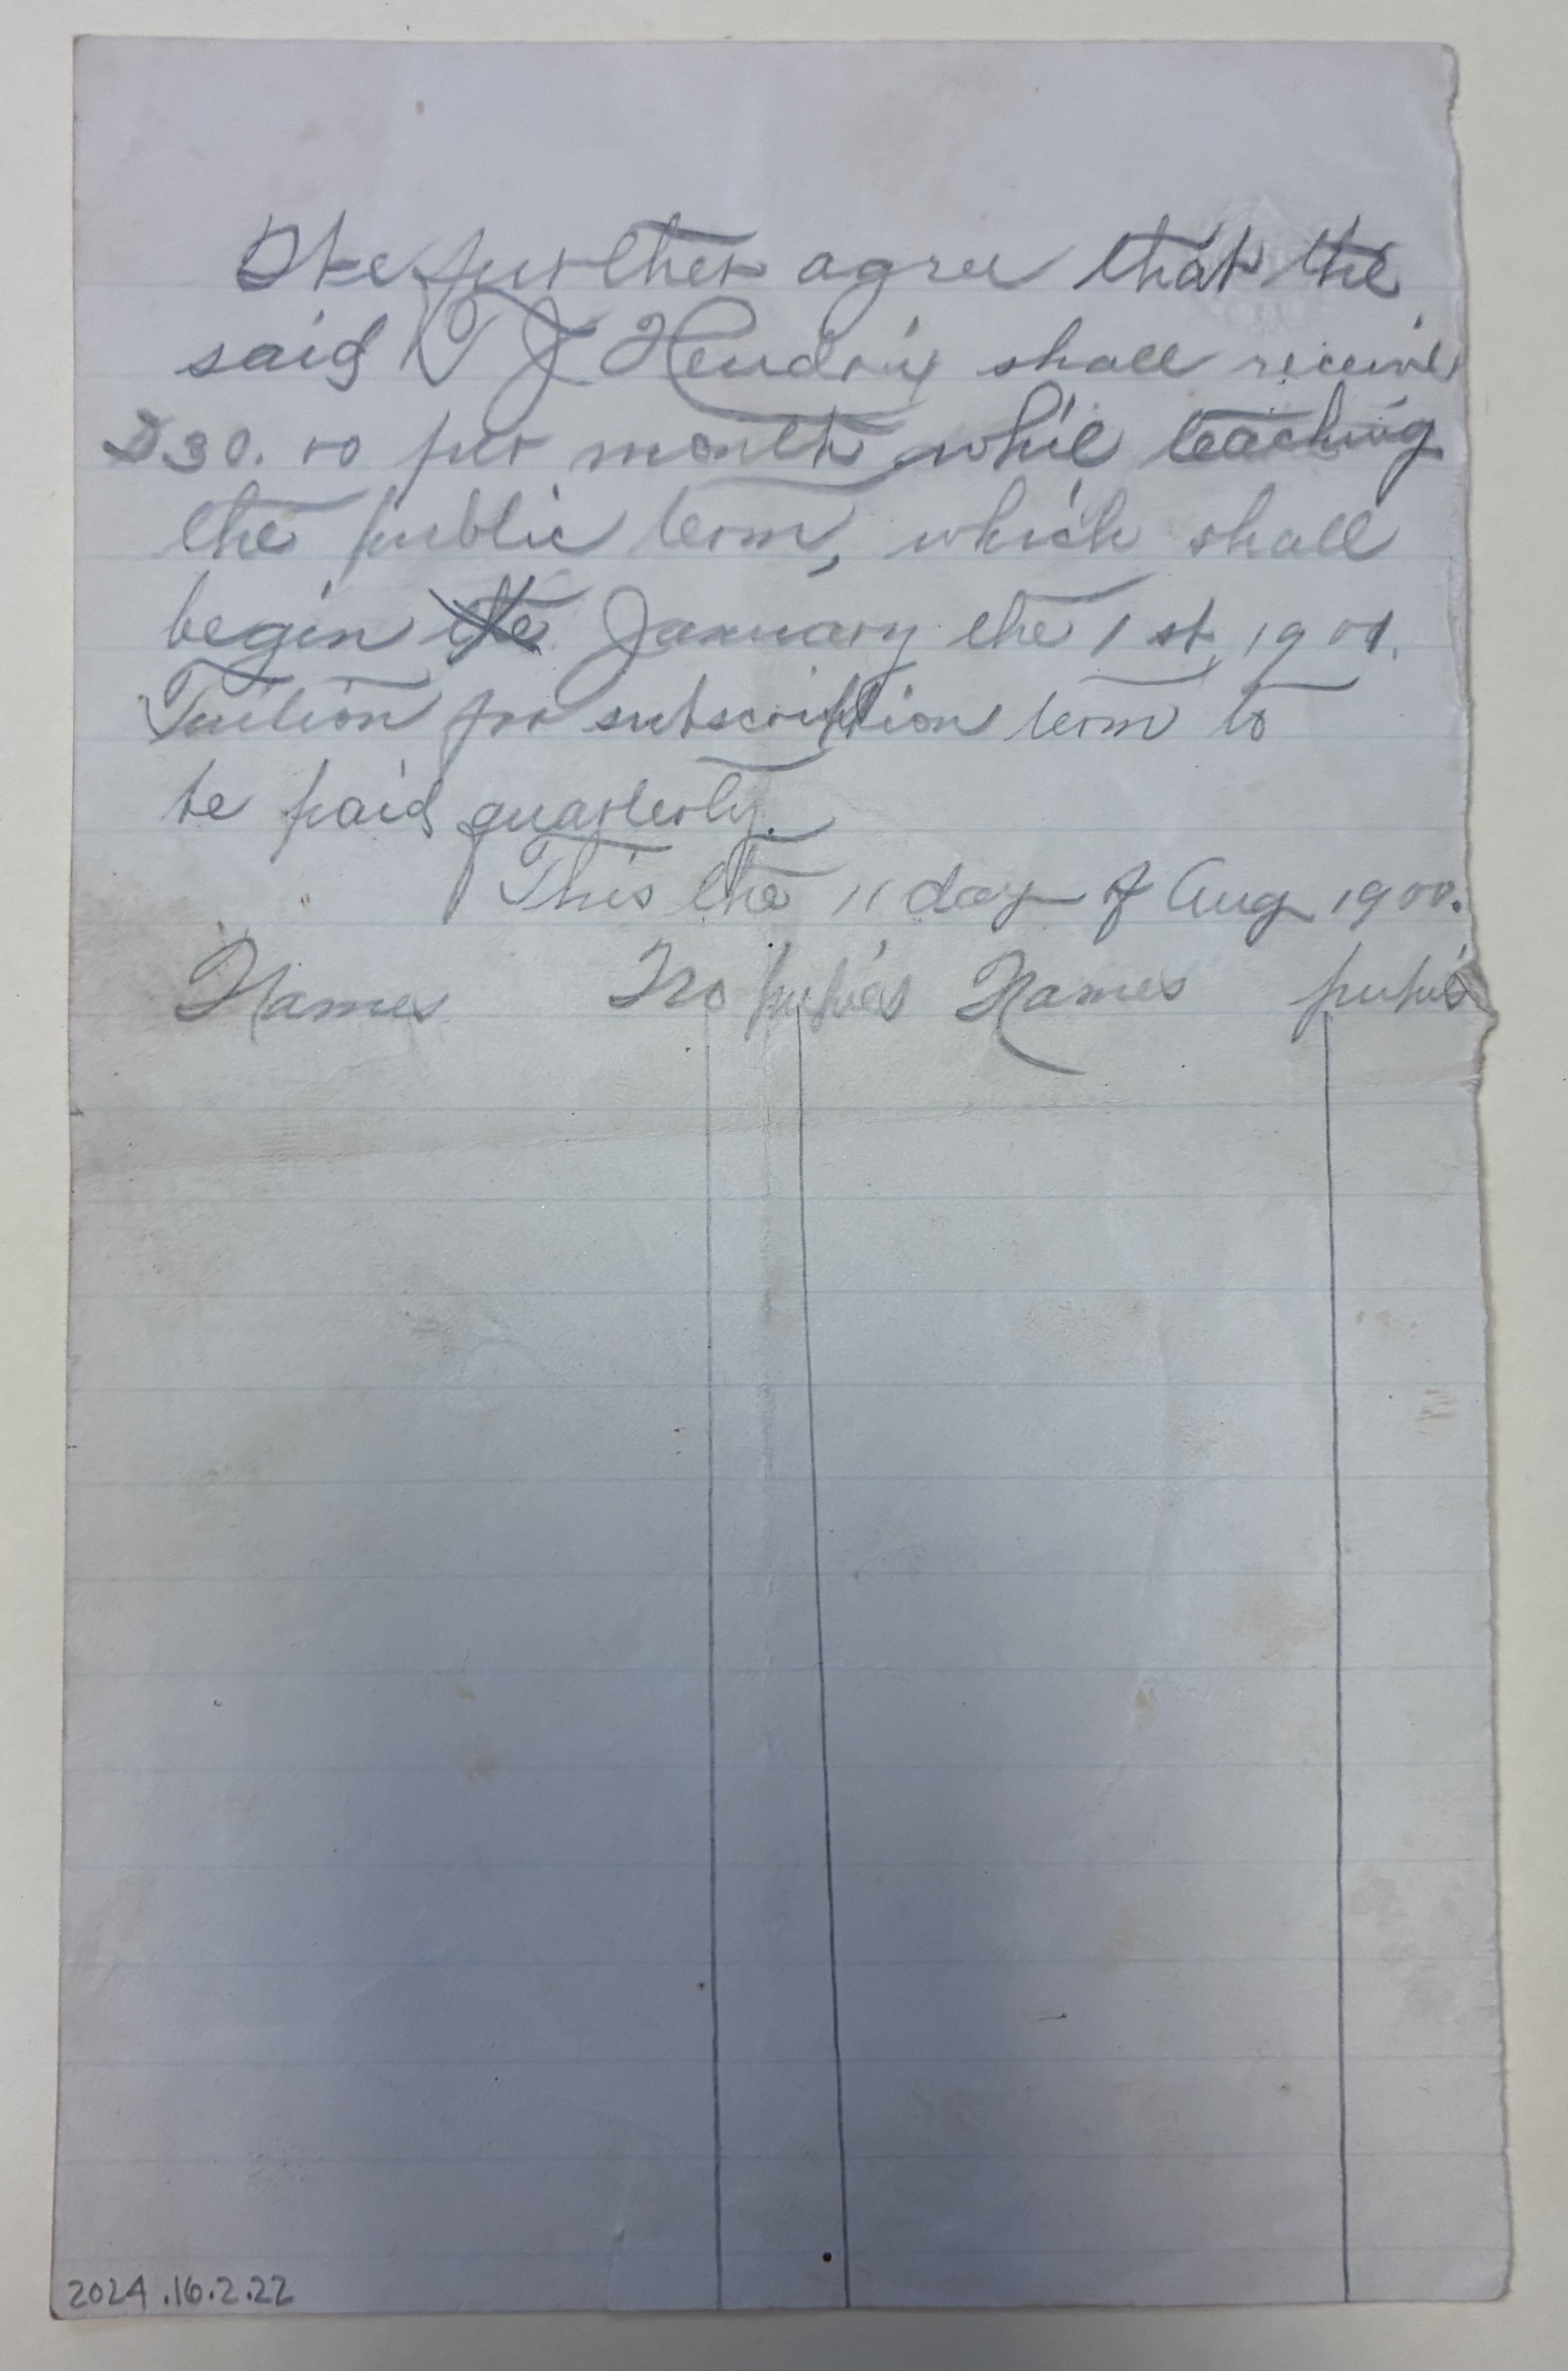 We further agree that the
said T J Hendrix shall receive
$30.00 per month whil teaching
the public term, which shall
begin the January the 1st, 1901.
Tuition for subscription term to
be paid quarterly.
This the 11 day of Aug 1900.
Names No pupils Names pupils
2024.16.2.22